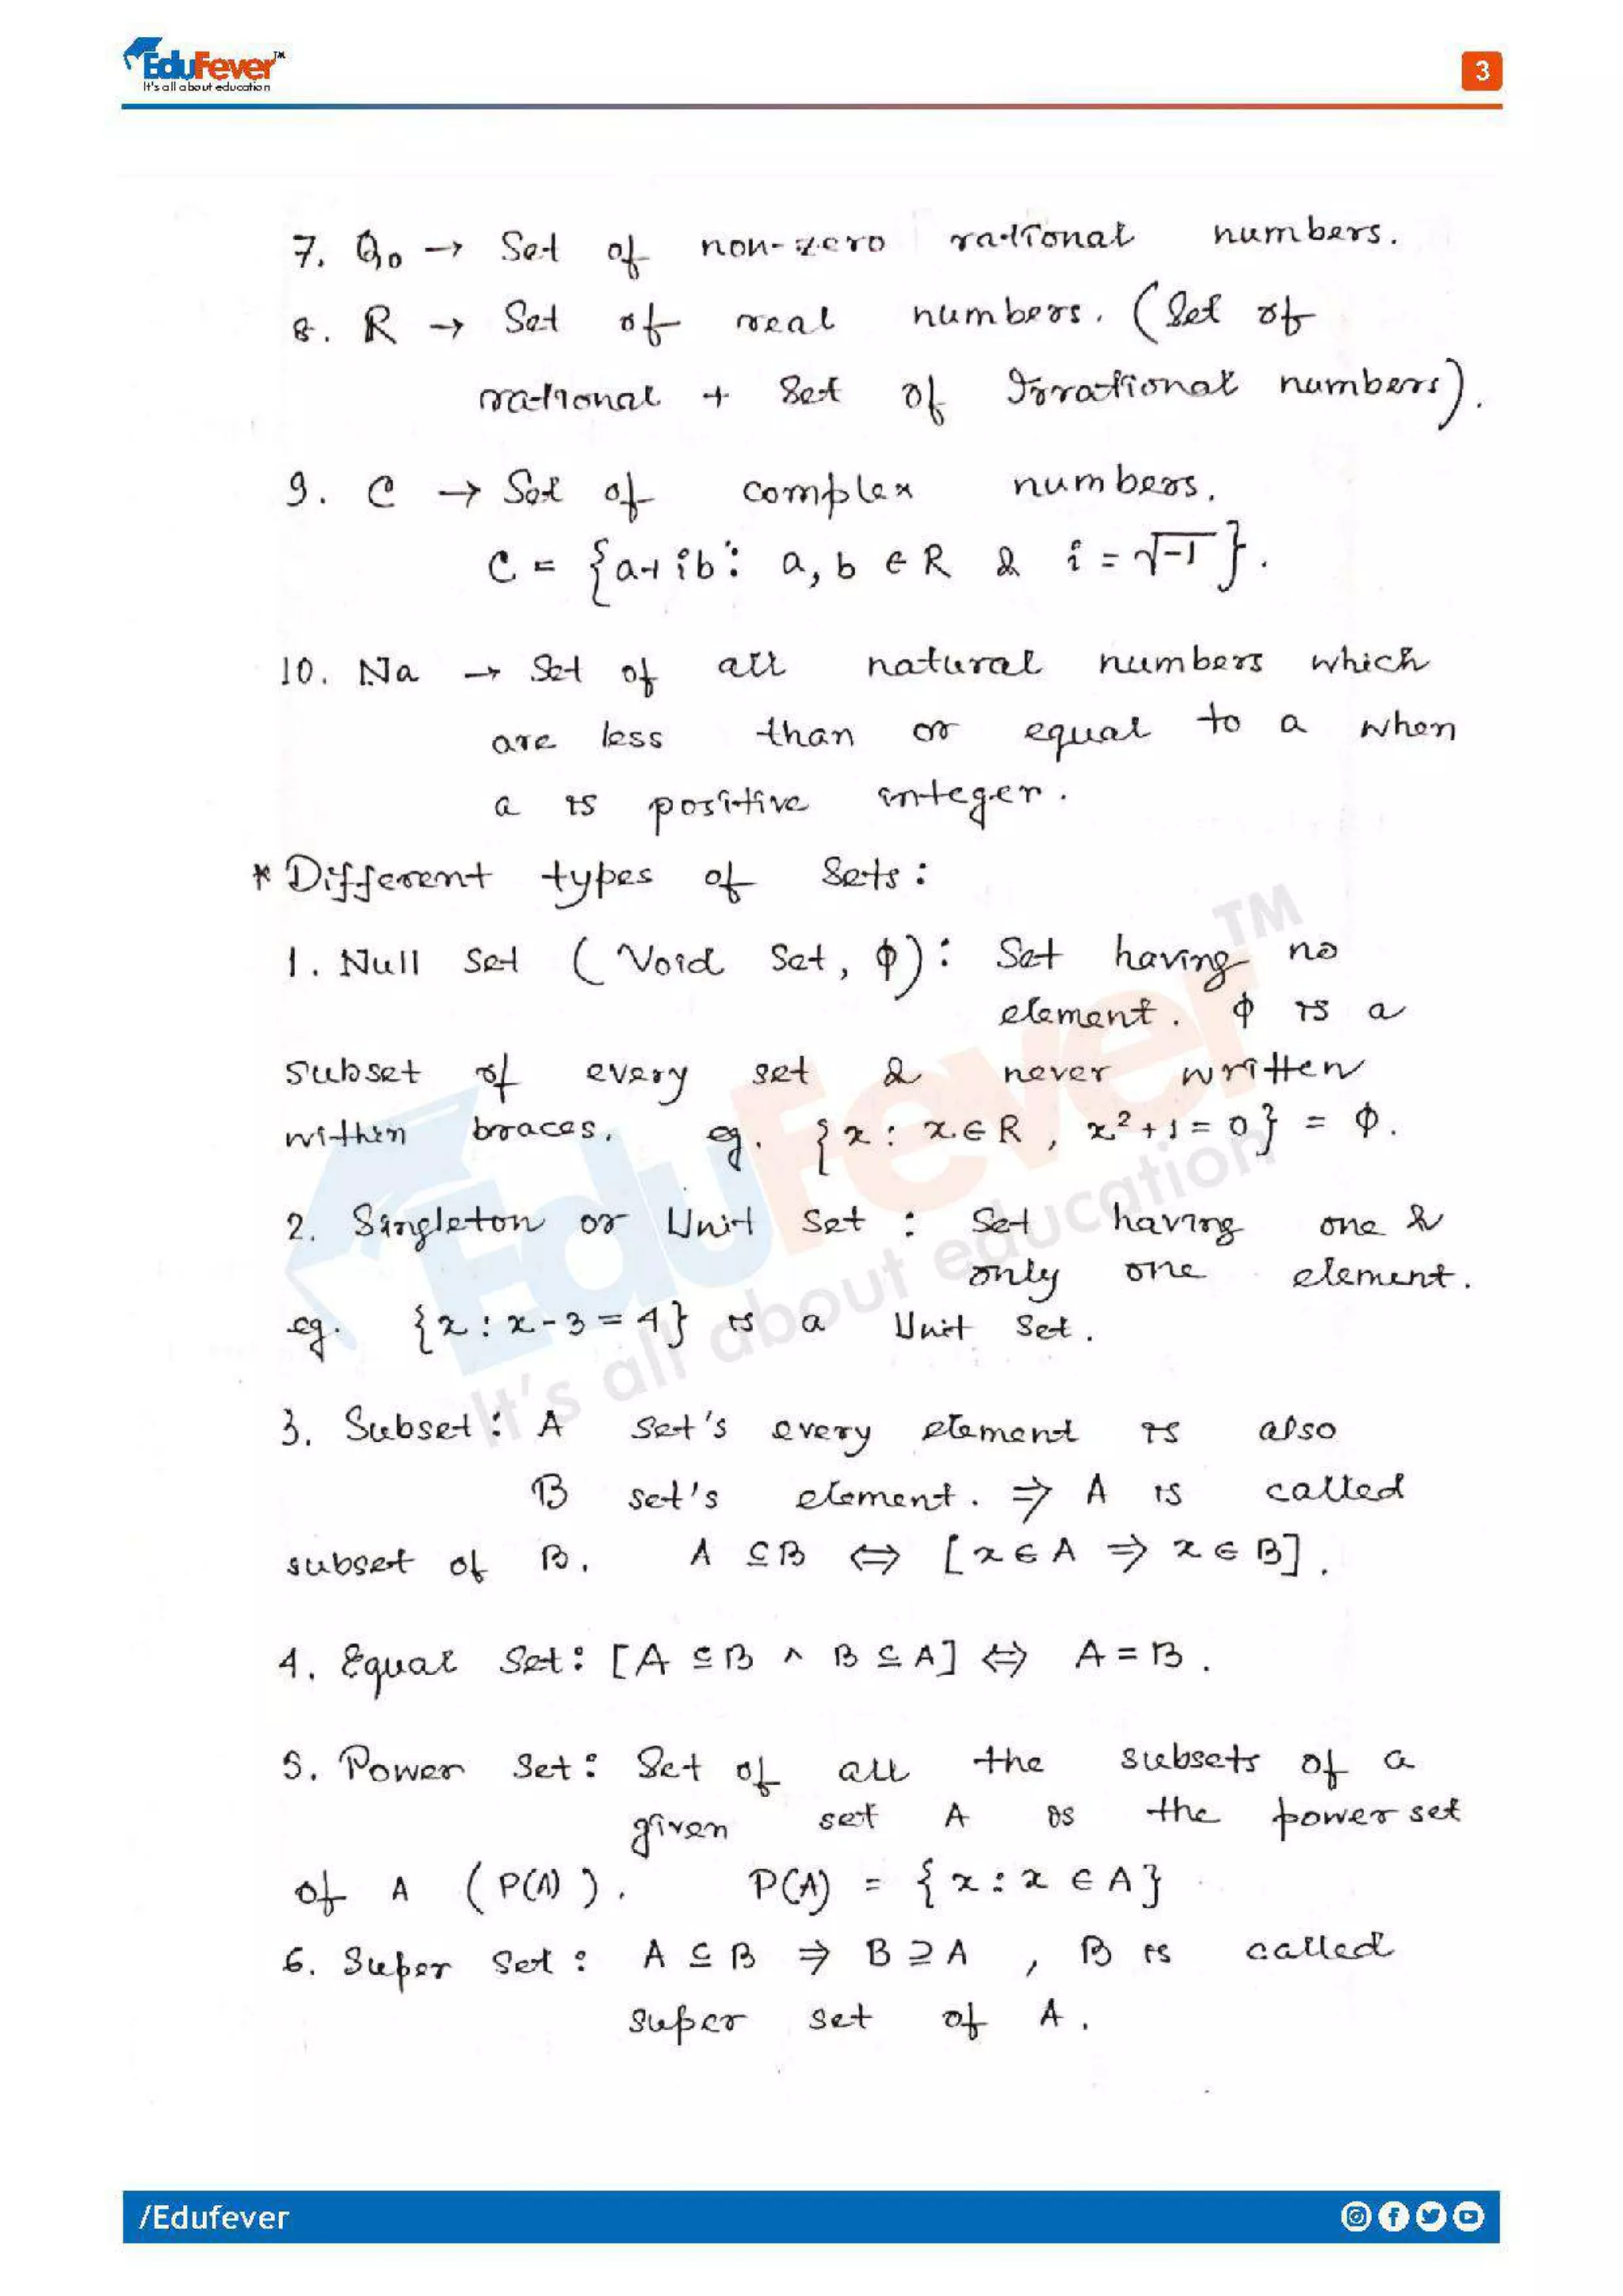 EduFever™
It's all about education
3
7. Q₀ → Set of non-zero rational numbers.
8. R → Set of real numbers. (Set of
rational + Set of Irrational numbers).
9. C → Set of complex numbers.
C = {a+ib: a, b ∈ R & i = √-1}.
10. Na → Set of all natural numbers which
are less than or equal to a when
a is positive integer.
* Different types of Sets:
1. Null Set (Void Set, ϕ): Set having no
element. ϕ is a
subset of every set & never written
within braces. eg. {x : x ∈ R, x²+1=0} = ϕ.
2. Singleton or Unit Set : Set having one &
only one element.
eg. {x : x-3=4} is a Unit Set.
3. Subset: A Set's every element is also
B set's element. ⇒ A is called
subset of B. A ⊆ B ⇔ [x ∈ A ⇒ x ∈ B].
4. Equal Set: [A ⊆ B ∧ B ⊆ A] ⇔ A = B.
5. Power Set: Set of all the subsets of a
given set A is the power set
of A (P(A)). P(A) = {x : x ∈ A}
6. Super Set: A ⊆ B ⇒ B ⊇ A, B is called
super set of A.
EduFever™
It's all about education
/Edufever